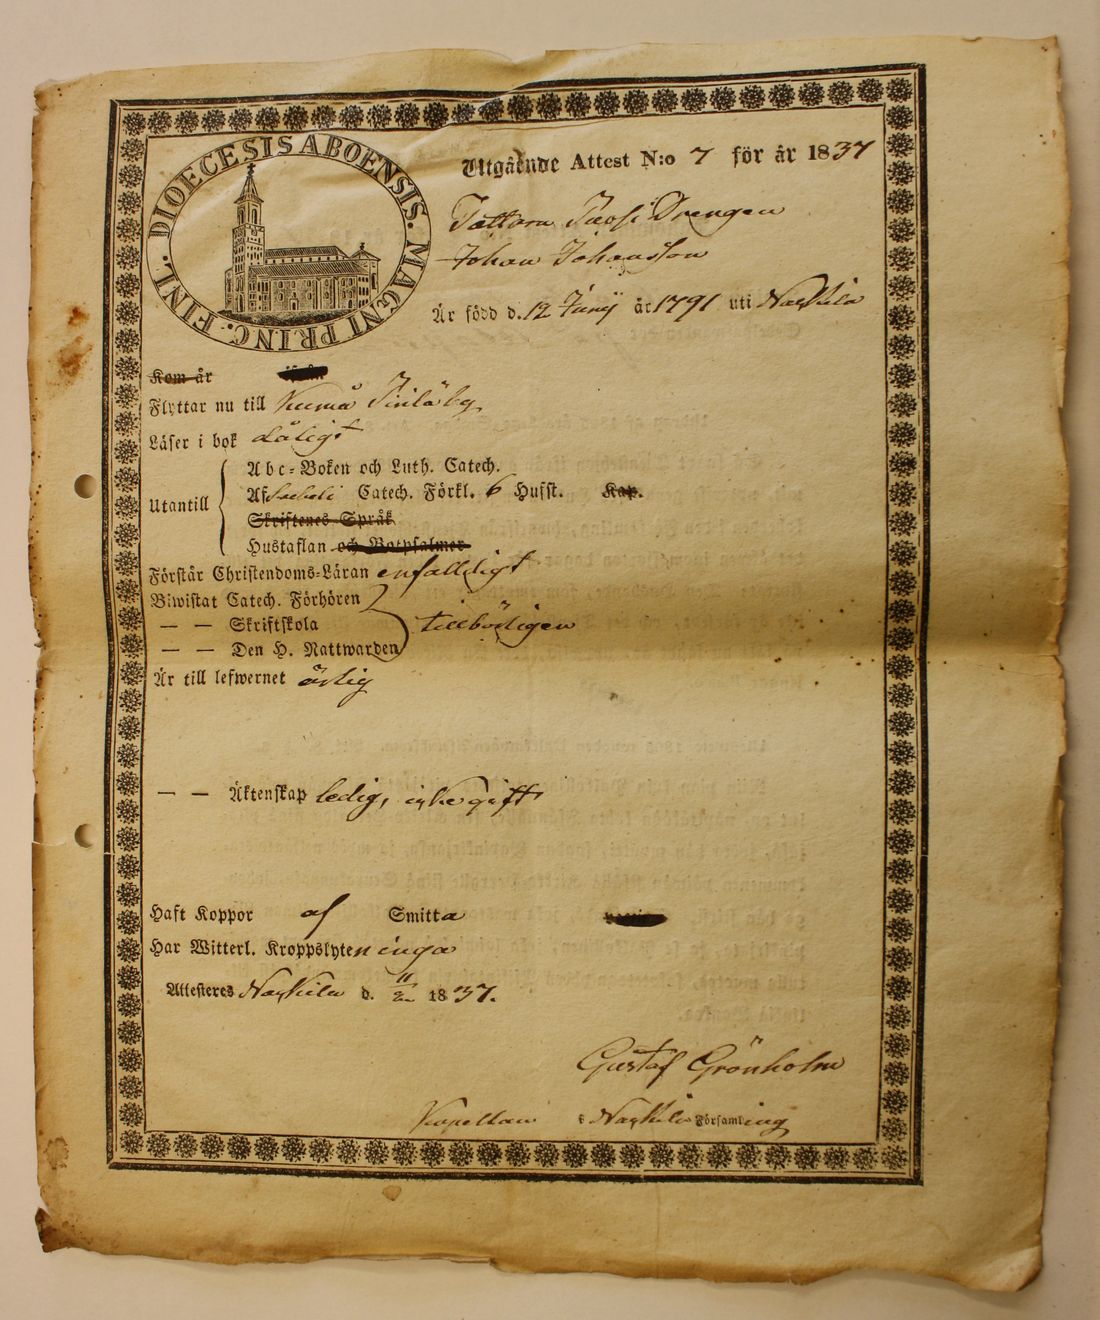 DIOECESIS ABOENSIS. MAGNI PRINC. FINL.
Utgående Attest N:o 7 för år 1837
Drengen
Johan Johansson
Är född d. 12 Junij år 1791 uti Naskila
Kom år ifrån
Flyttar nu till Kumå
Läser i bok dåligt
Utantill
Abc-Boken och Luth. Catech.
Af Catech. Förkl. 6 Husst. Kap.
Skriftenes Språk
Hustaflan och Botpsalmer
Förstår Christendoms-Läran enfalldigt
Biwistat Catech. Förhören
— — Skriftskola tillbörligen
— — Den H. Nattwarden
Är till lefwernet ärlig
— — Äktenskap ledig, icke gift
Haft Koppor af Smitta
Har Witterl. Kroppslyten inga
Attesteres Naskila d. 11/2 1837.
Gustaf Grönholm
Kapellan i Naskila Församling